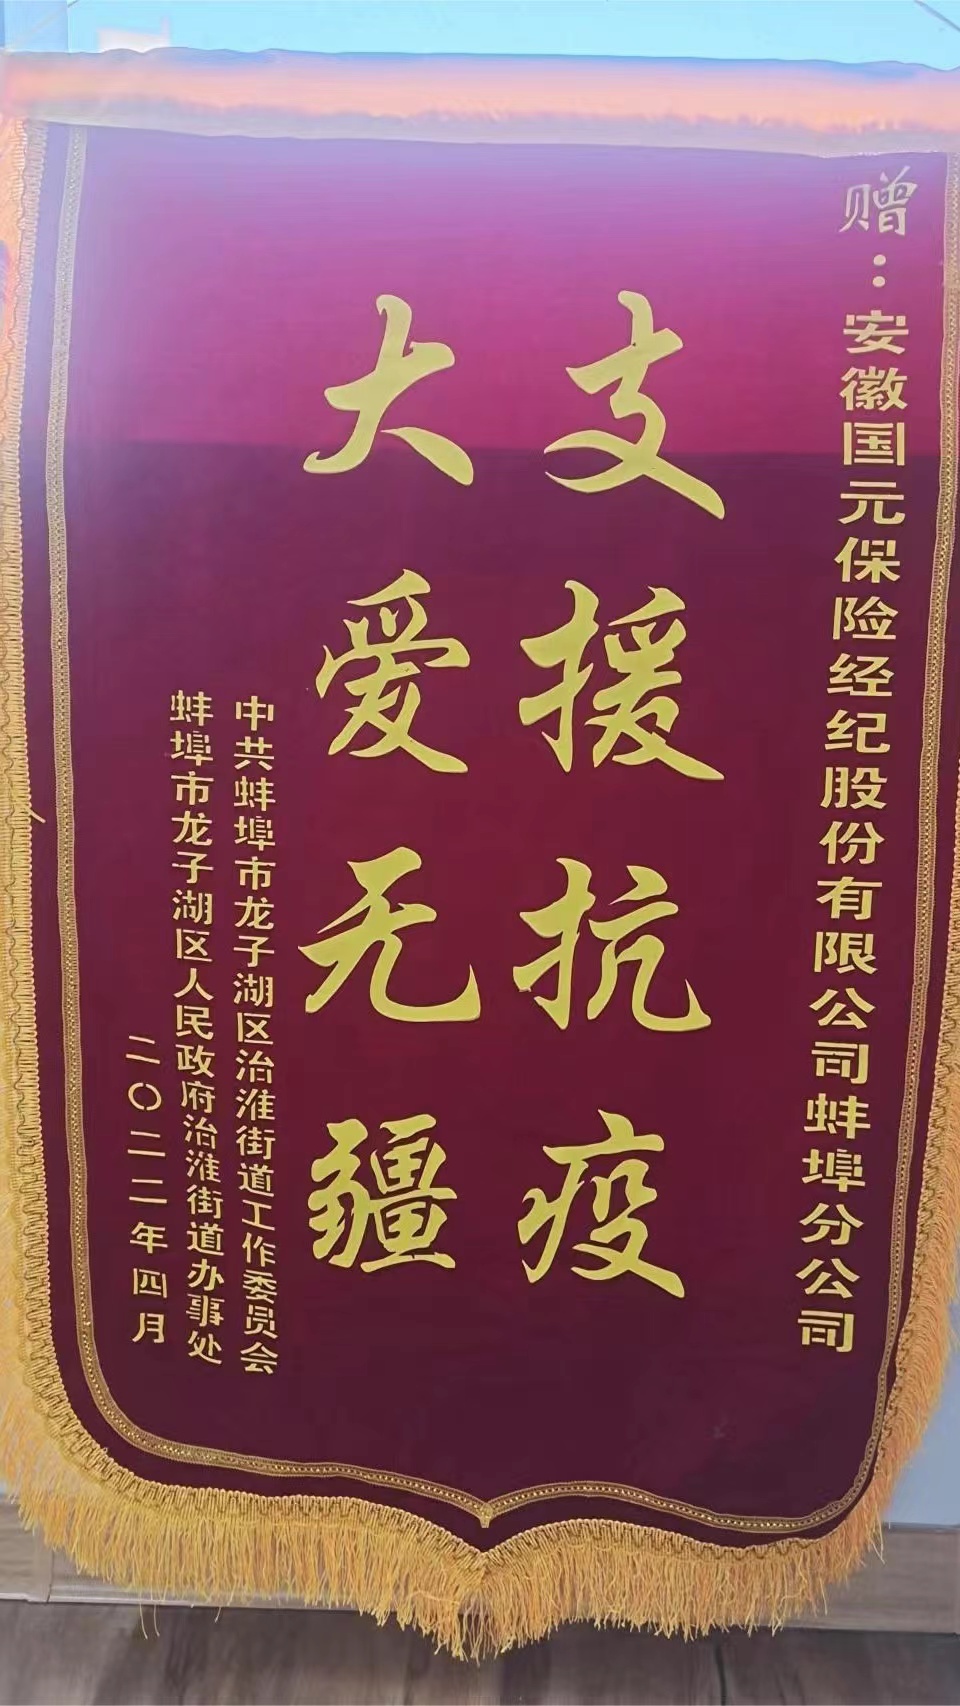 赠：安徽国元保险经纪股份有限公司蚌埠分公司
支援抗疫
大爱无疆
中共蚌埠市龙子湖区治淮街道工作委员会
蚌埠市龙子湖区人民政府治淮街道办事处
二〇二二年四月